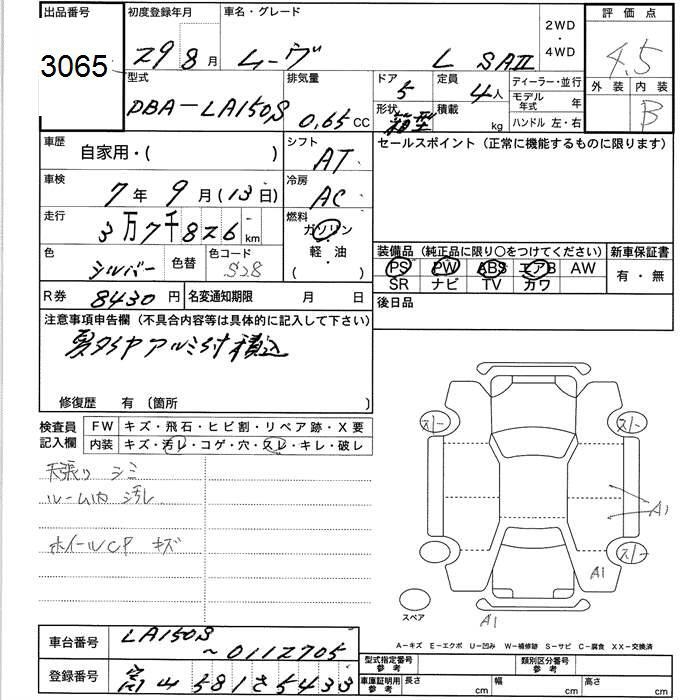 出品番号
3065
初度登録年月
29 8月
車名・グレード
ムーヴ L SAⅡ
2WD
・
4WD
評価点
4.5
外装 内装
B
型式
DBA-LA150S
排気量
0.65 CC
ドア
5
形状
箱型
定員
4人
積載
kg
ディーラー・並行
モデル年式 年
ハンドル 左・右
車歴
自家用・( )
シフト
AT
セールスポイント(正常に機能するものに限ります)
車検
7年 9月(13日)
冷房
AC
走行
3万7千826km
燃料
ガソリン
軽・油
( ・ )
色
シルバー
色替
色コード
S28
装備品(純正品に限り〇をつけてください)
新車保証書
PS PW ABS エアB AW
SR ナビ TV カワ
有・無
R券 8430円
名変通知期限 月 日
後日品
注意事項申告欄(不具合内容等は具体的に記入して下さい)
夏タイヤアルミ付積込
修復歴 有〔箇所 〕
検査員
記入欄
FW キズ・飛石・ヒビ割・リペア跡・X要
内装 キズ・汚レ・コゲ・穴・スレ・キレ・破レ
天張り シミ
ルーム内 汚レ
ホイールCP キズ
スﾄｰ
スﾄｰ
A1
スﾄｰ
A1
スペア
A1
A-キズ E-エクボ U-凹み W-補修跡 S-サビ C-腐食 XX-交換済
車台番号
LA150S
~0112705
登録番号
富山 581 さ 5433
型式指定番号
参考
類別区分番号
参考
車庫証明用
参考
長さ cm
幅 cm
高さ cm